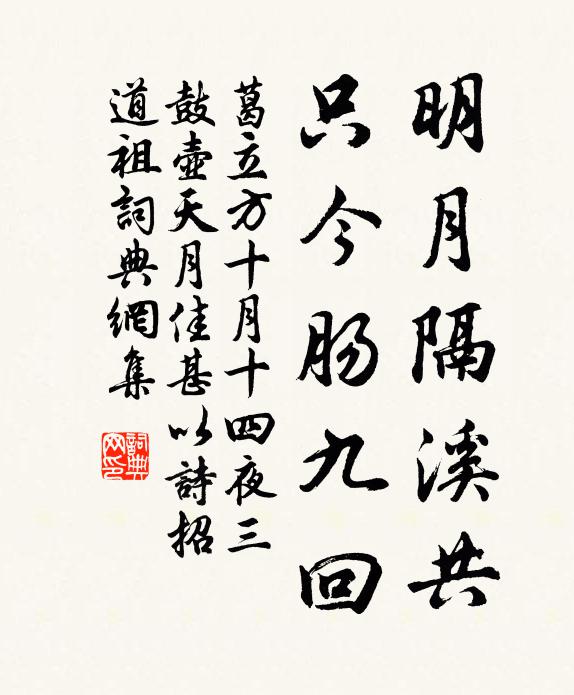 明月隔溪共
只今肠九回
葛立方十月十四夜三
鼓壶天月佳甚以詩招
道祖詞典網集
詞典網印